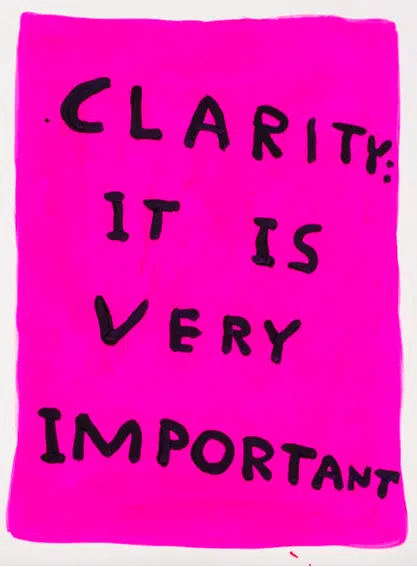 CLARITY:
IT IS
VERY
IMPORTANT